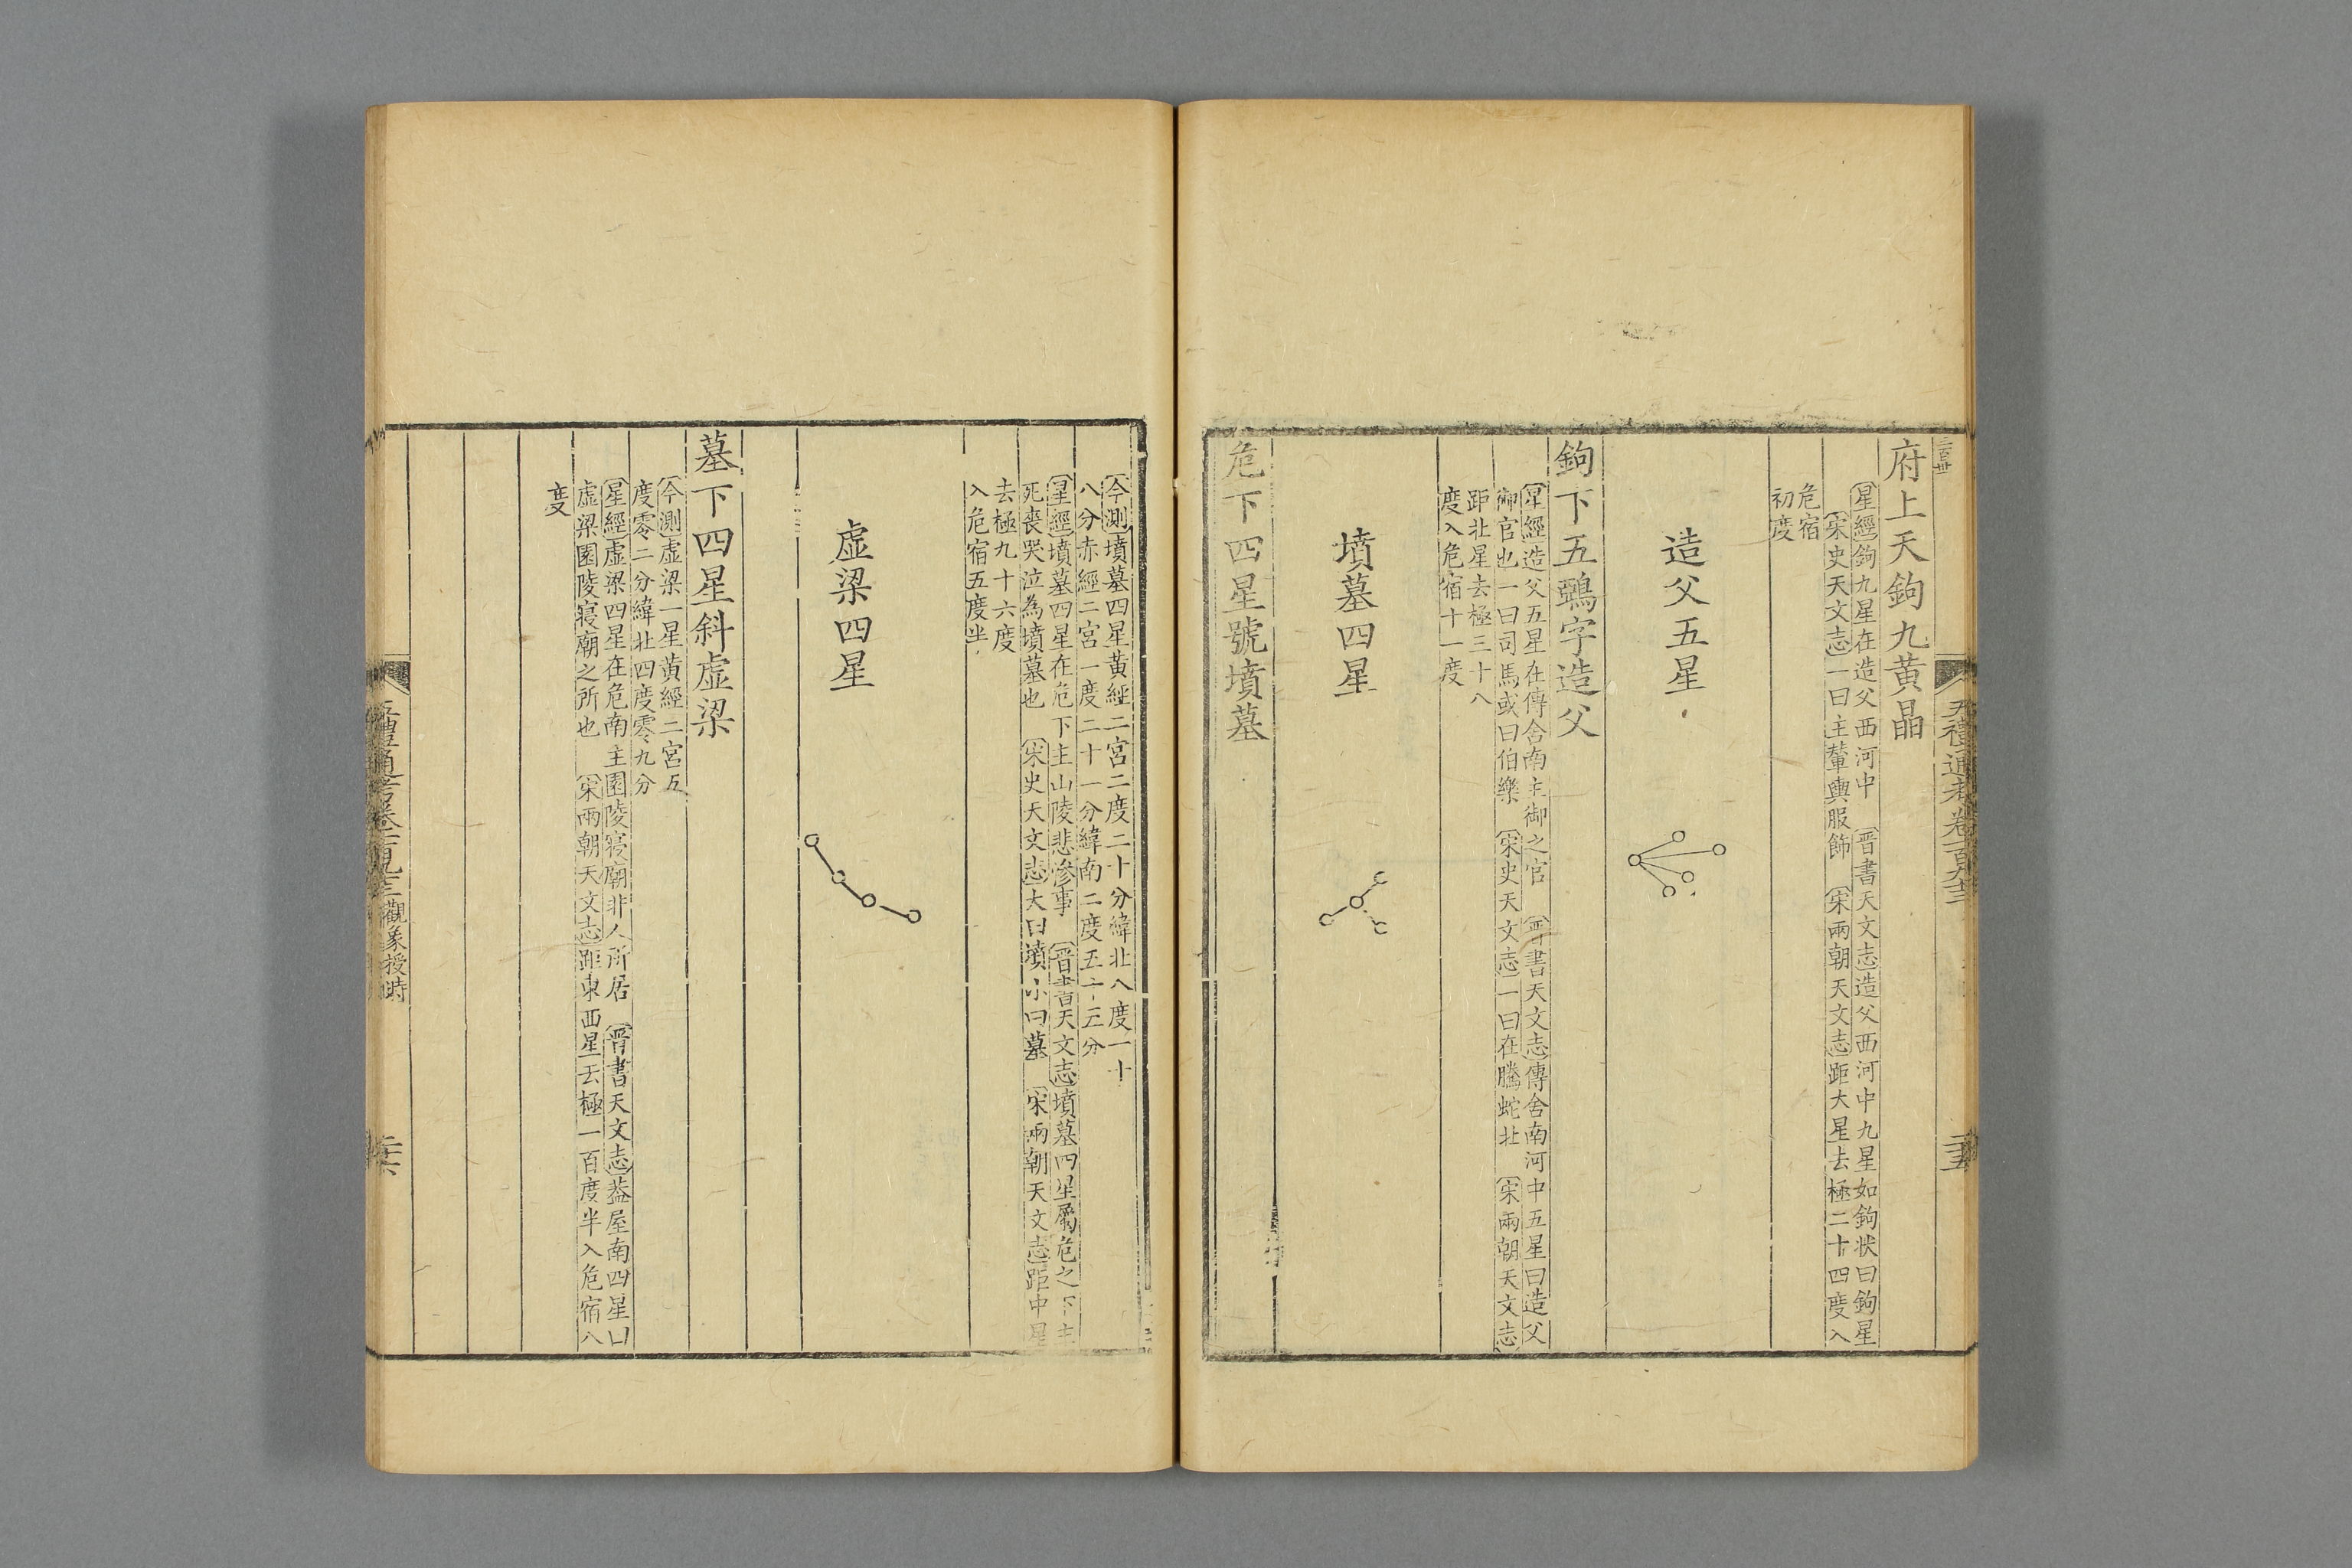 府上天鉤九黃晶
星經鉤九星在造父西河中　晉書天文志造父西河中九星如鉤状曰鉤星
宋史天文志一曰主輦輿服飾　宋兩朝天文志距大星去極二十四度入
危宿
初度
造父五星
鉤下五鵶字造父
星經造父五星在傳舍南主御之官　晉書天文志傳舍南河中五星曰造父
御官也一曰司馬或曰伯樂　宋史天文志一曰在騰蛇北　宋兩朝天文志
距北星去極三十八
度入危宿十一度
墳墓四星
危下四星號墳墓
今測墳墓四星黃經二宮二度二十分緯北八度一十
八分赤經二宮一度二十一分緯南二度五十三分
星經墳墓四星在危下主山陵悲慘事　晉書天文志墳墓四星屬危之下主
死喪哭泣為墳墓也　宋史天文志大曰墳小曰墓　宋兩朝天文志距中星
去極九十六度
入危宿五度半
虛梁四星
墓下四星斜虛梁
今測虛梁一星黃經二宮五
度零二分緯北四度零九分
星經虛梁四星在危南主園陵寢廟非人所居　晉書天文志葢屋南四星曰
虛梁園陵寢廟之所也　宋兩朝天文志距東西星去極一百度半入危宿八
度
五禮通考卷一百九十三 觀象授時
二十六